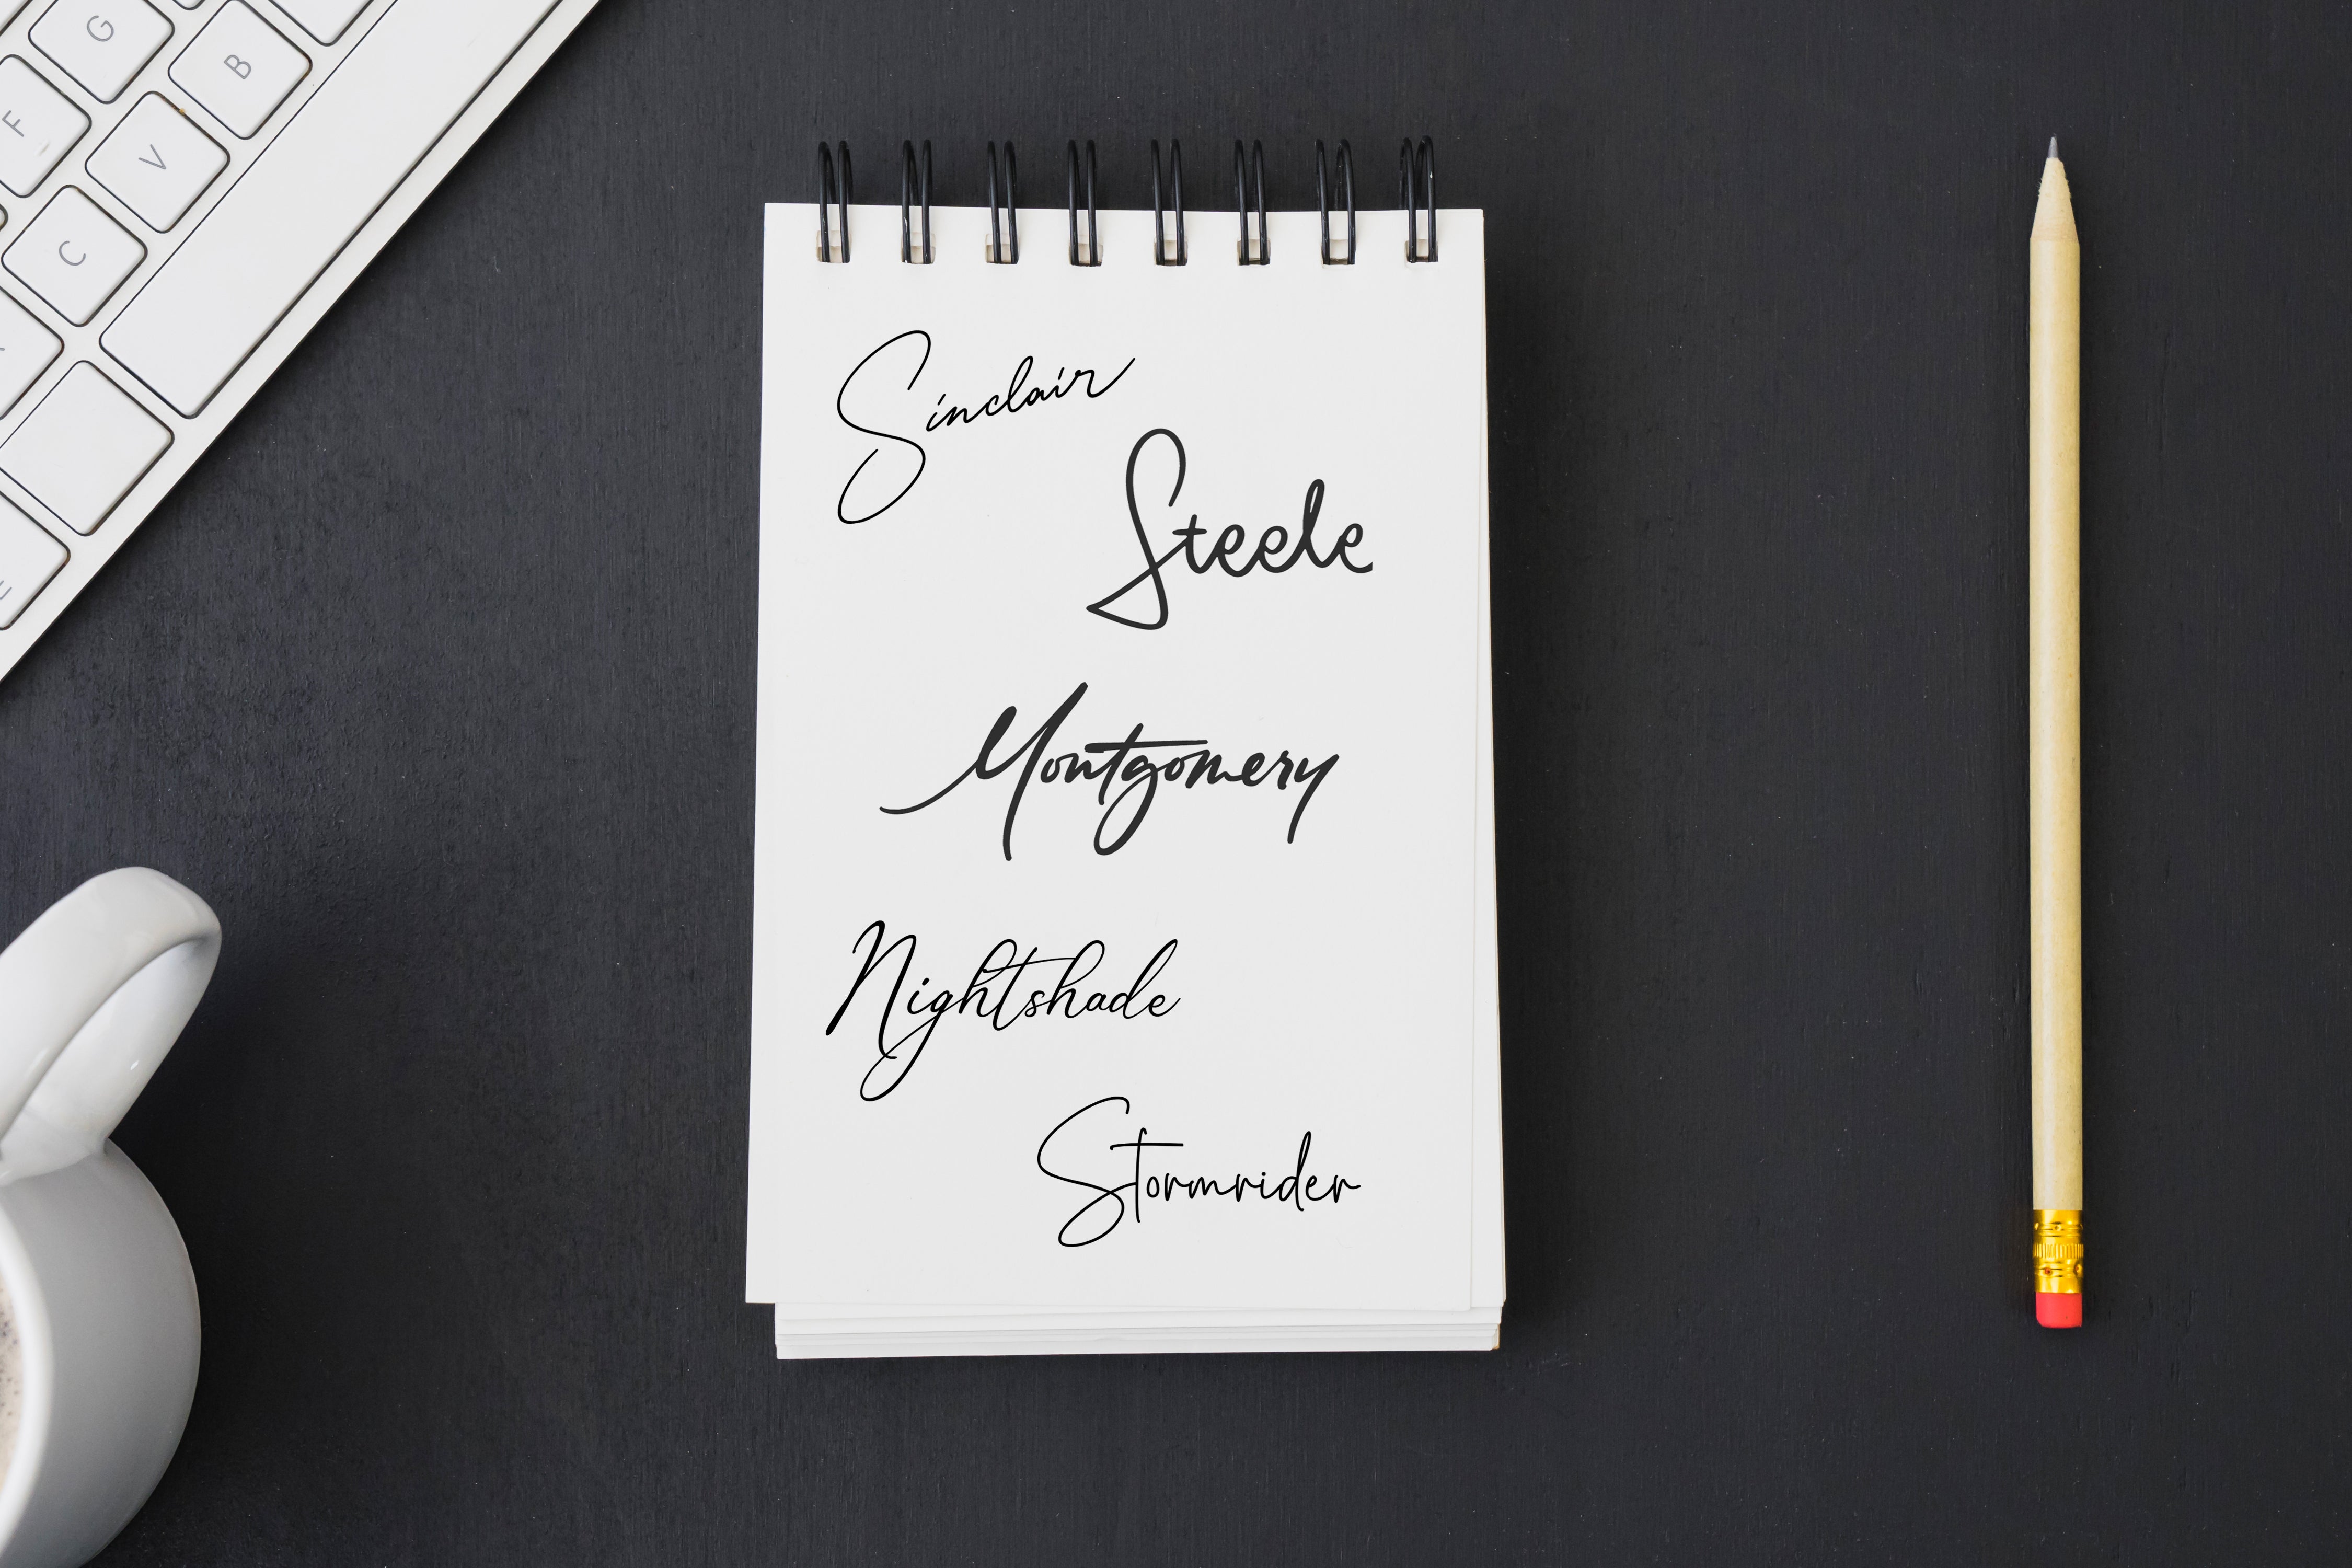 G
B
F
V
C
Sinclair
Steele
Montgomery
Nightshade
Stormrider